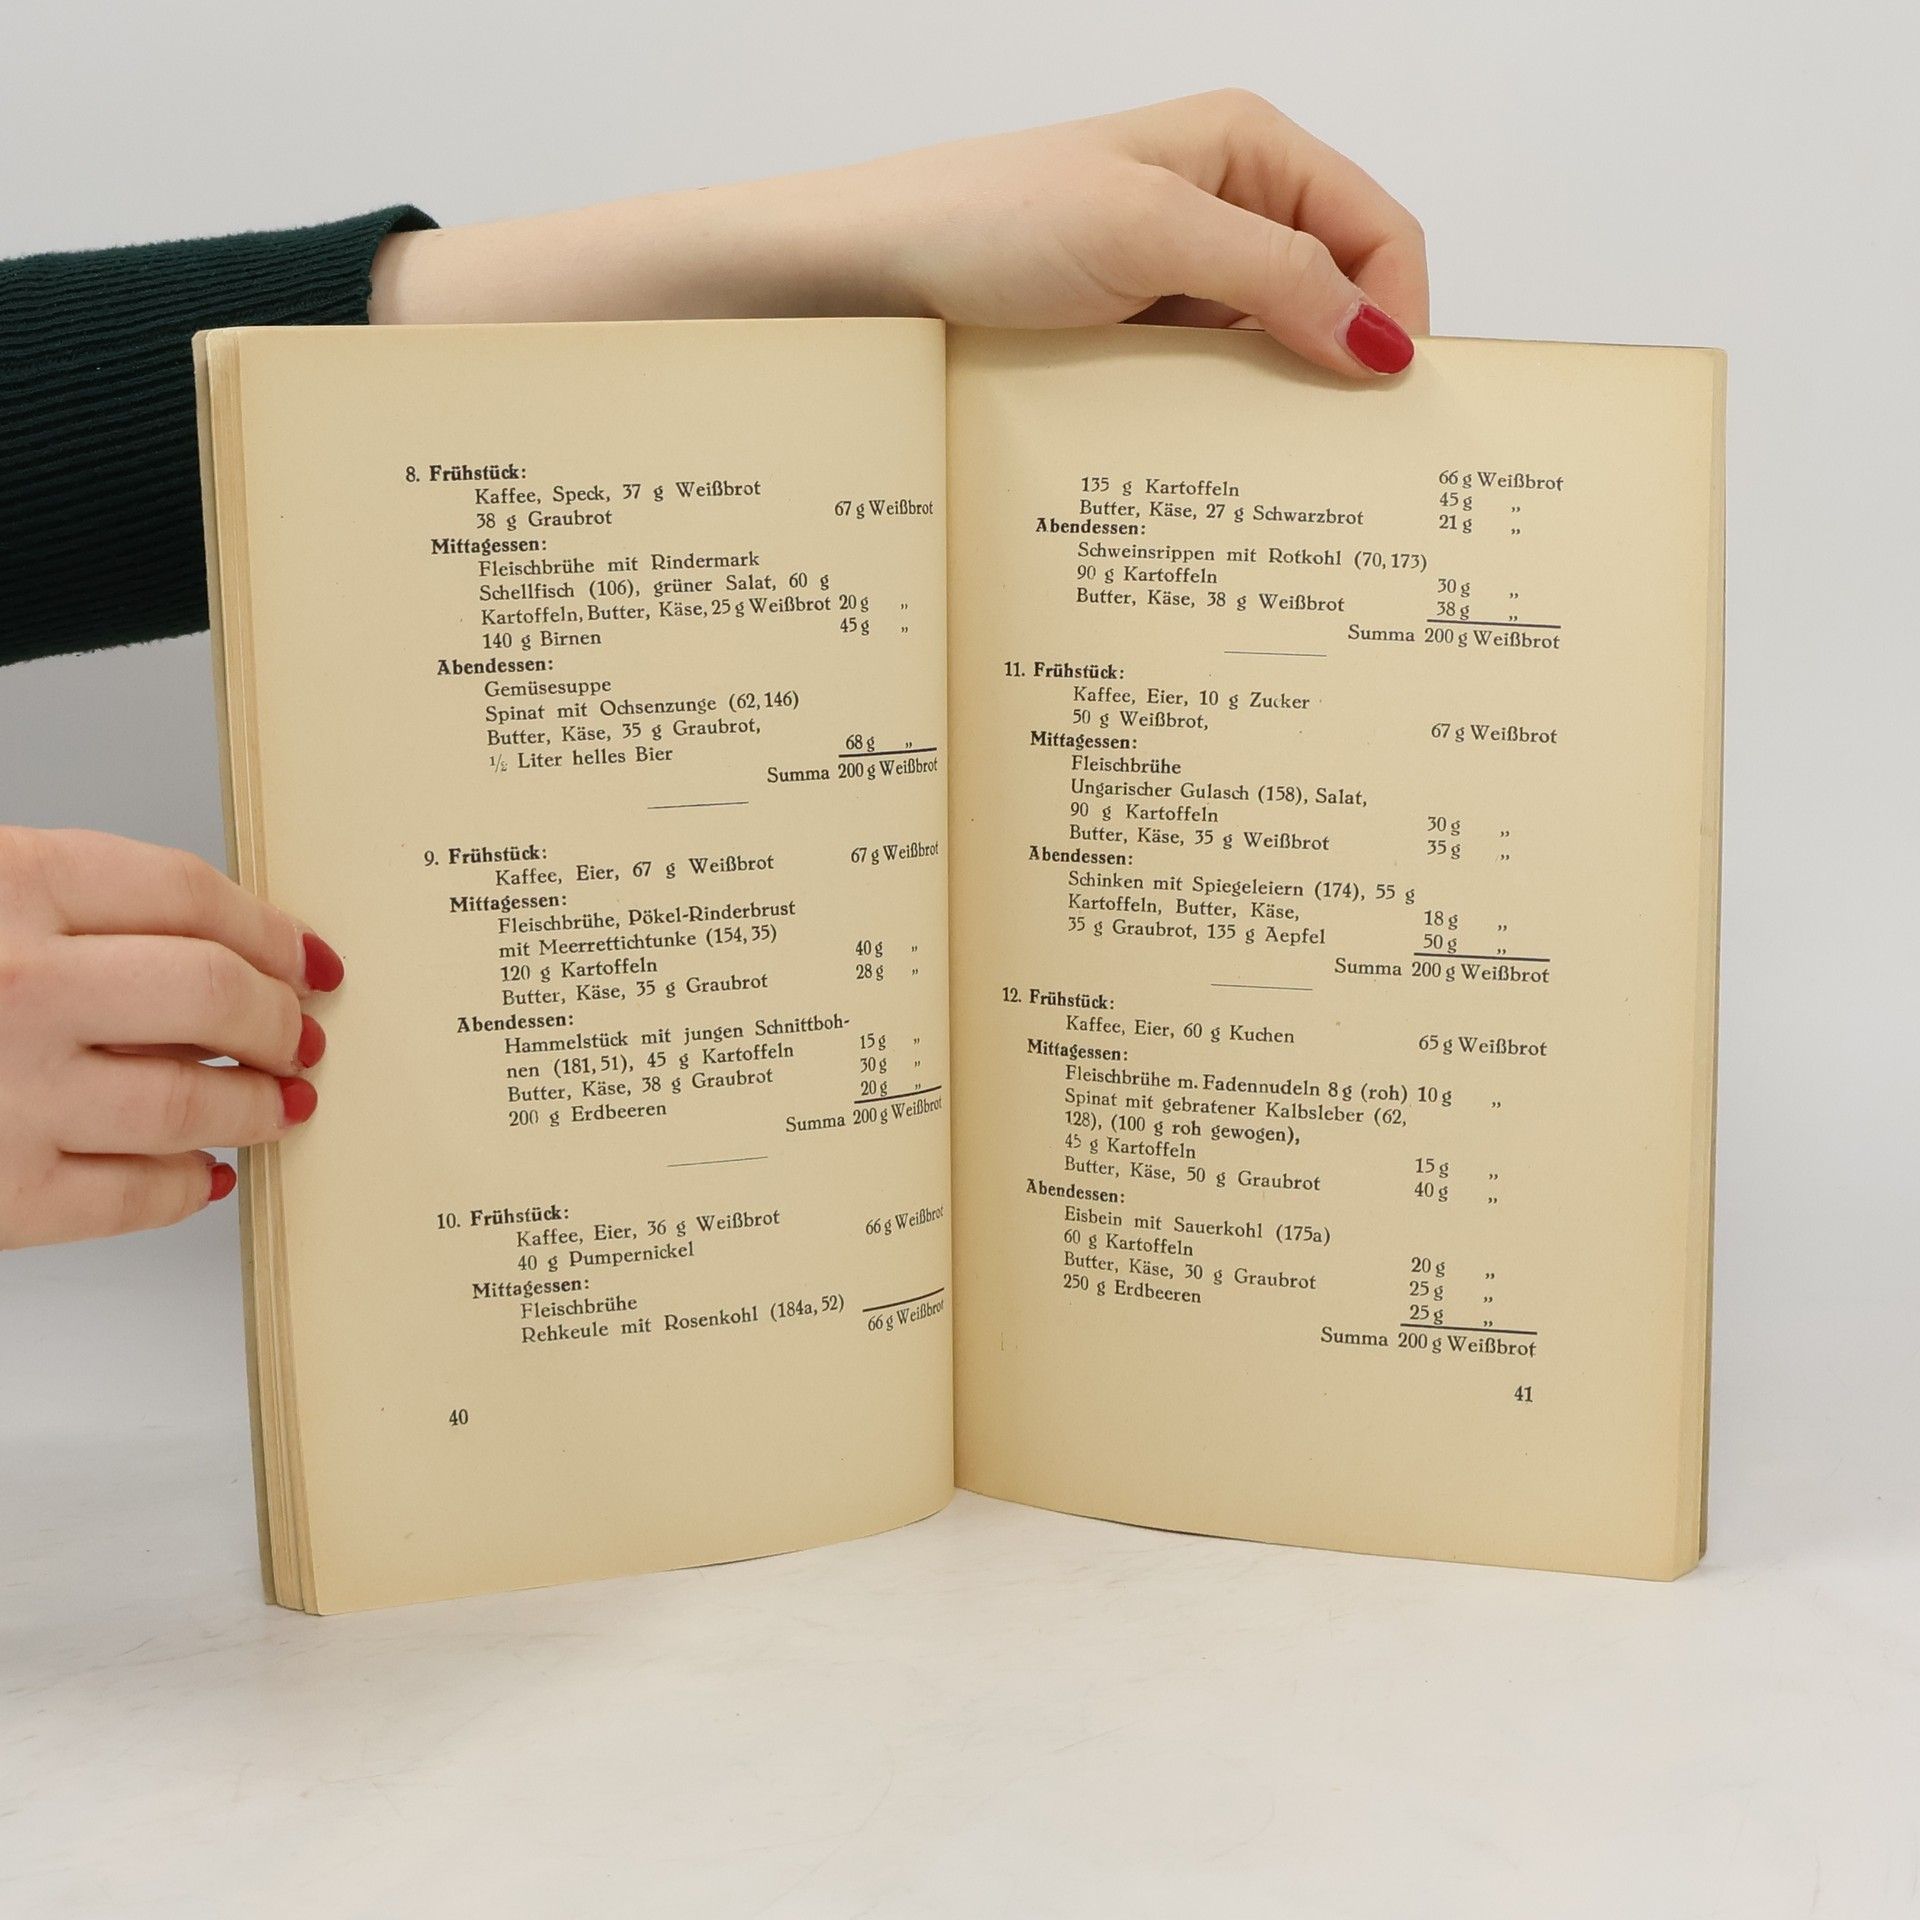 8. Frühstück:
Kaffee, Speck, 37 g Weißbrot
38 g Graubrot 67 g Weißbrot
Mittagessen:
Fleischbrühe mit Rindermark
Schellfisch (106), grüner Salat, 60 g
Kartoffeln, Butter, Käse, 25 g Weißbrot 20 g „
140 g Birnen 45 g „
Abendessen:
Gemüsesuppe
Spinat mit Ochsenzunge (62, 146)
Butter, Käse, 35 g Graubrot,
1/2 Liter helles Bier 68 g „
Summa 200 g Weißbrot
9. Frühstück:
Kaffee, Eier, 67 g Weißbrot 67 g Weißbrot
Mittagessen:
Fleischbrühe, Pökel-Rinderbrust
mit Meerrettichtunke (154, 35)
120 g Kartoffeln 40 g „
Butter, Käse, 35 g Graubrot 28 g „
Abendessen:
Hammelstück mit jungen Schnittboh-
nen (181, 51), 45 g Kartoffeln 15 g „
Butter, Käse, 38 g Graubrot 30 g „
200 g Erdbeeren 20 g „
Summa 200 g Weißbrot
10. Frühstück:
Kaffee, Eier, 36 g Weißbrot
40 g Pumpernickel 66 g Weißbrot
Mittagessen:
Fleischbrühe
Rehkeule mit Rosenkohl (184a, 52)
66 g Weißbrot
40
66 g Weißbrot
135 g Kartoffeln 45 g „
Butter, Käse, 27 g Schwarzbrot 21 g „
Abendessen:
Schweinsrippen mit Rotkohl (70, 173)
90 g Kartoffeln 30 g „
Butter, Käse, 38 g Weißbrot 38 g „
Summa 200 g Weißbrot
11. Frühstück:
Kaffee, Eier, 10 g Zucker
50 g Weißbrot, 67 g Weißbrot
Mittagessen:
Fleischbrühe
Ungarischer Gulasch (158), Salat,
90 g Kartoffeln 30 g „
Butter, Käse, 35 g Weißbrot 35 g „
Abendessen:
Schinken mit Spiegeleiern (174), 55 g
Kartoffeln, Butter, Käse, 18 g „
35 g Graubrot, 135 g Aepfel 50 g „
Summa 200 g Weißbrot
12. Frühstück:
Kaffee, Eier, 60 g Kuchen 65 g Weißbrot
Mittagessen:
Fleischbrühe m. Fadennudeln 8 g (roh) 10 g „
Spinat mit gebratener Kalbsleber (62,
128), (100 g roh gewogen),
45 g Kartoffeln 15 g „
Butter, Käse, 50 g Graubrot 40 g „
Abendessen:
Eisbein mit Sauerkohl (175a)
60 g Kartoffeln 20 g „
Butter, Käse, 30 g Graubrot 25 g „
250 g Erdbeeren 25 g „
Summa 200 g Weißbrot
41